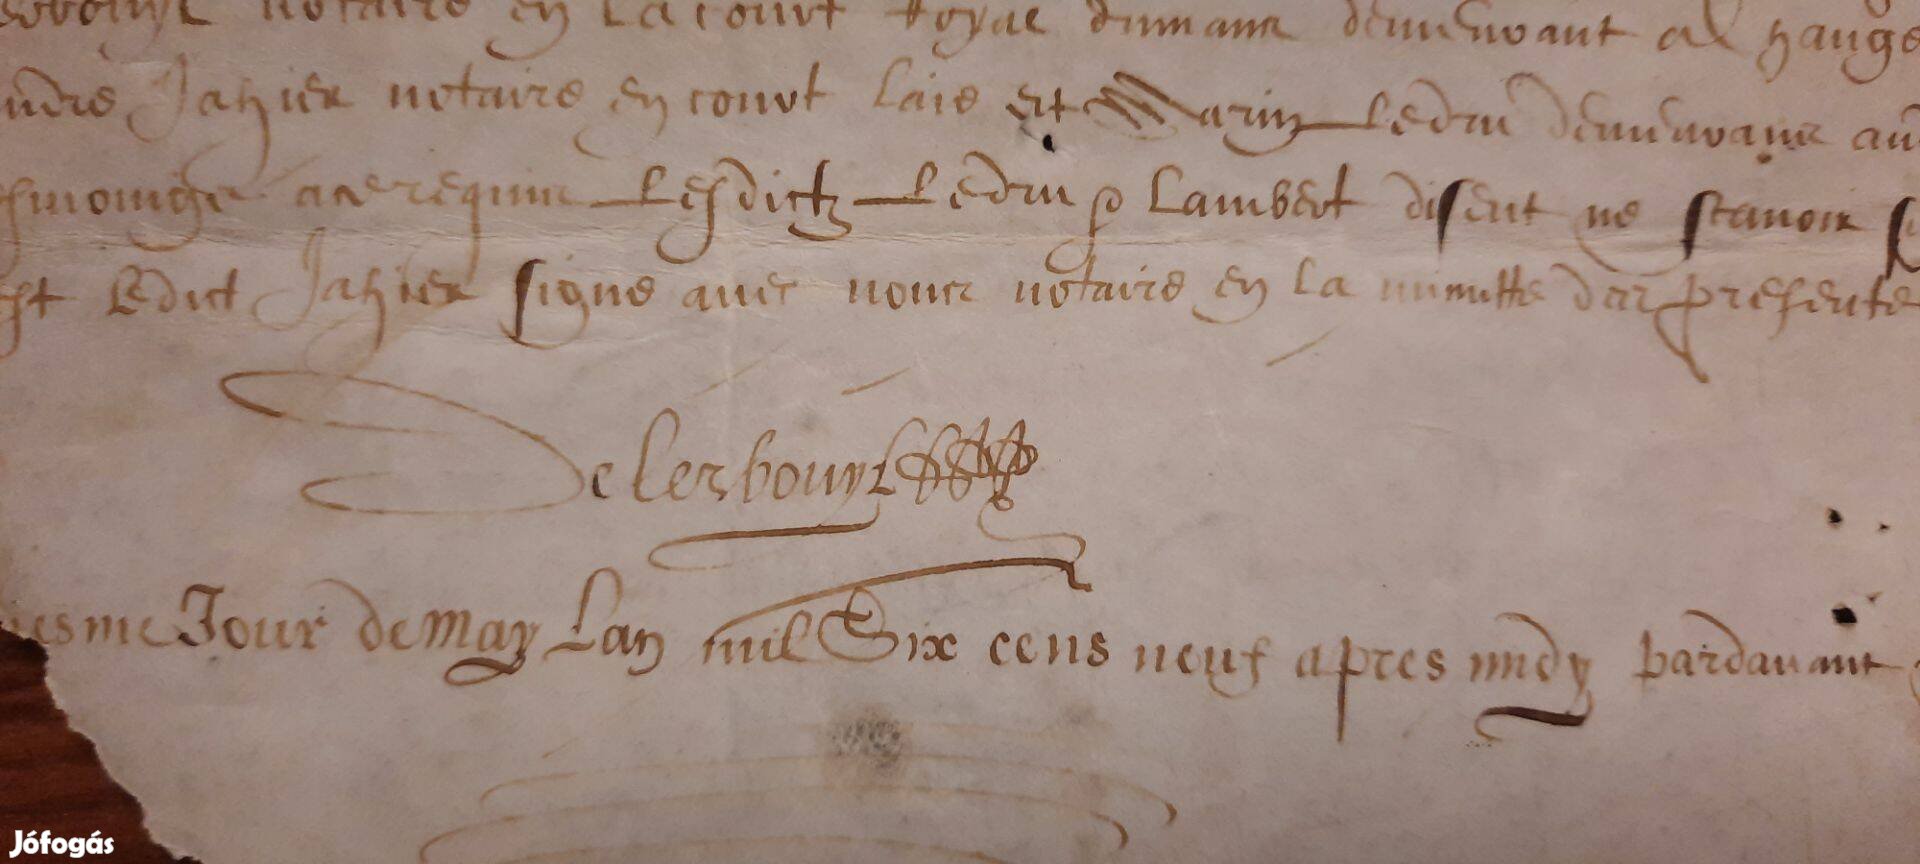 notaire en La court Royal dumans demeurant al
Jahier notaire en court laie et Marin Ledru demeurant au
a ce requis Lesdictz Ledru & Lambert disent ne scavoir
Ledict Jahier signé avec nous notaire en La minutte des presente
De lerbouyl
esme Jour de may Lan mil Six cens neuf apres midy pardavant
Jófogás